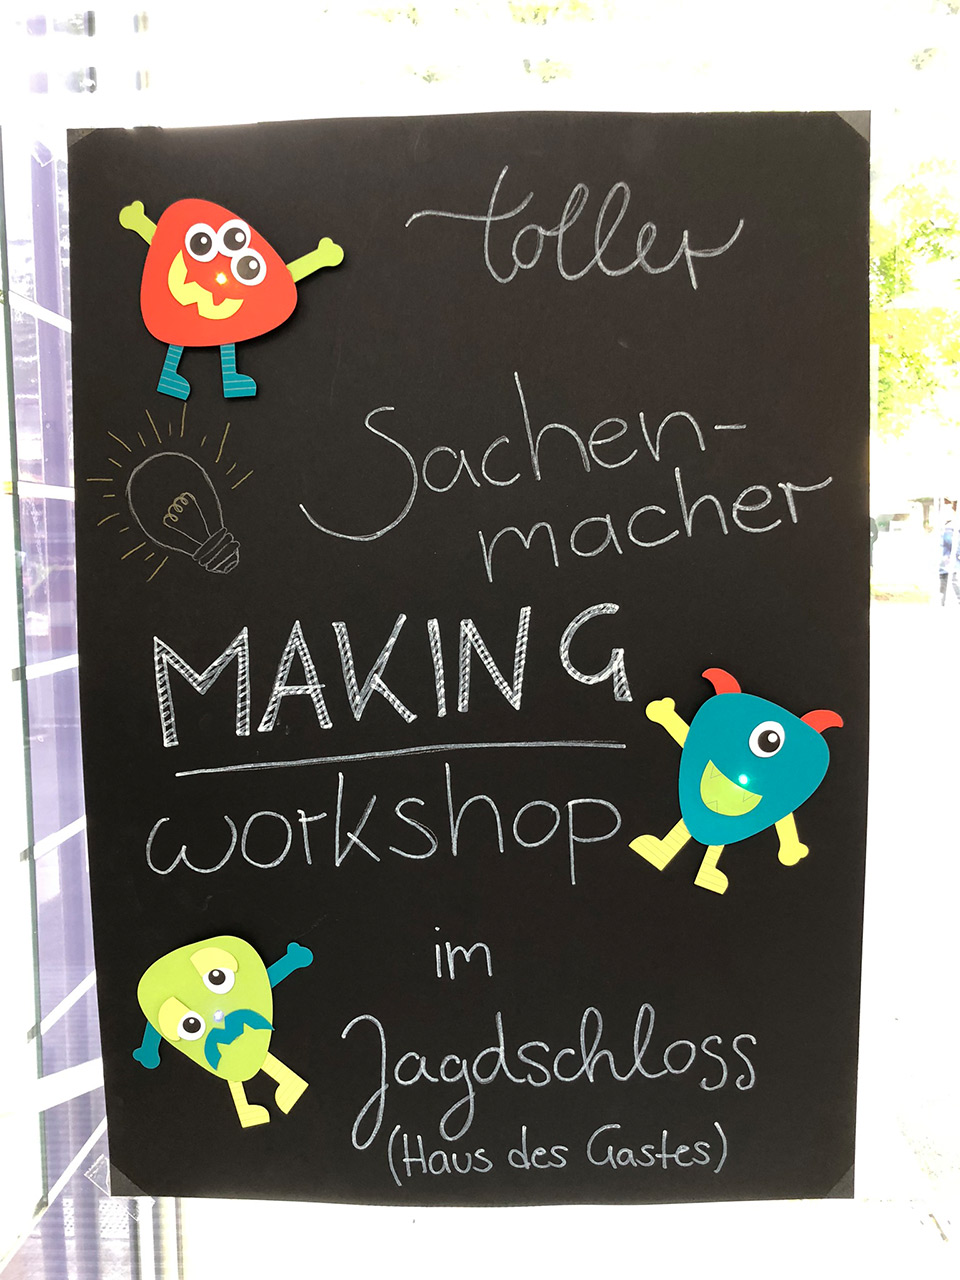 toller
Sachen-
macher
MAKING
workshop
im
Jagdschloss
(Haus des Gastes)